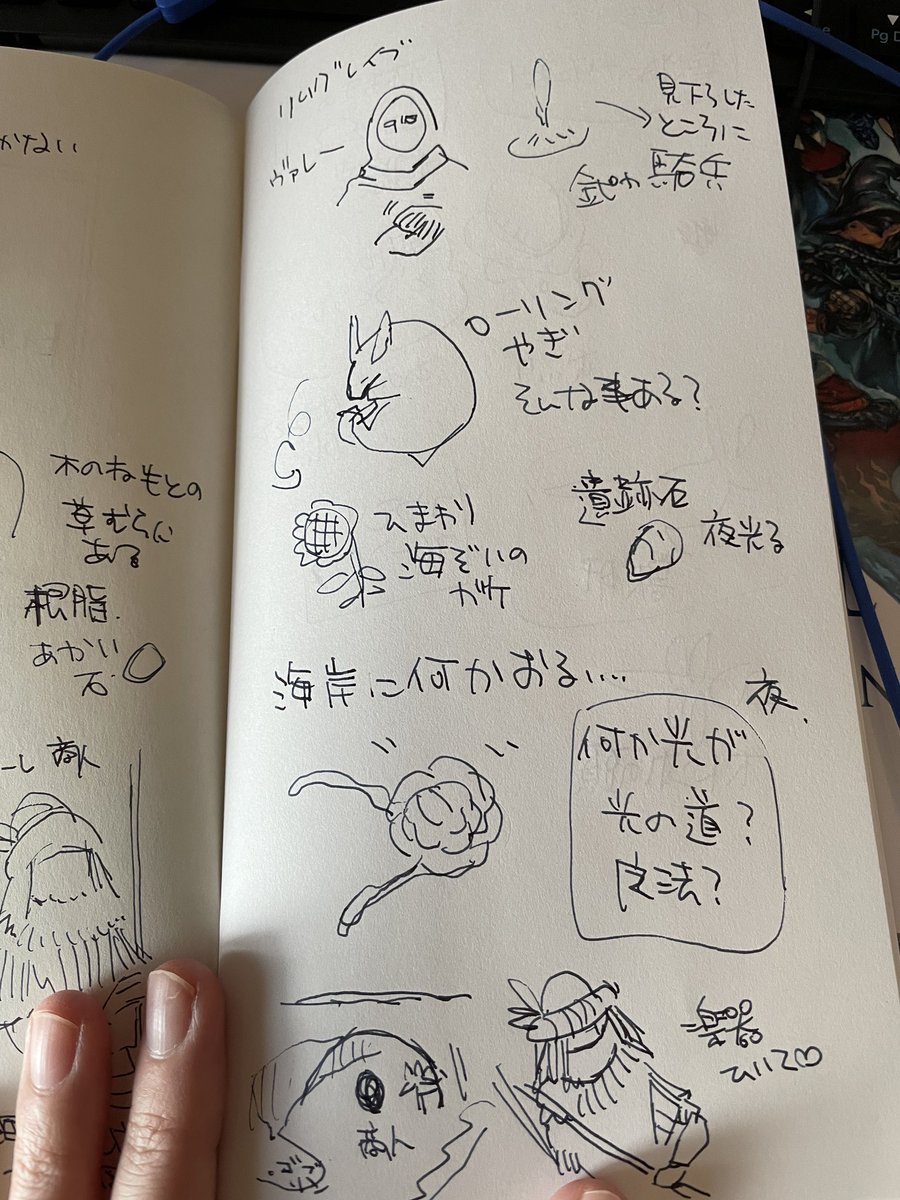 かない
木のねもとの
草むらに
ある
根脂.
あかい
石
商人
リムグレイブ
ヴァレー
見下ろした
ところに
金ぴか騎兵
ローリング
やぎ
そんな事ある?
ひまわり
海ぞいの
がけ
遺跡石
夜光る
海岸に何かおる....
夜.
何か光が
光の道?
魔法?
商人
楽器
ひいて♡
Pg D